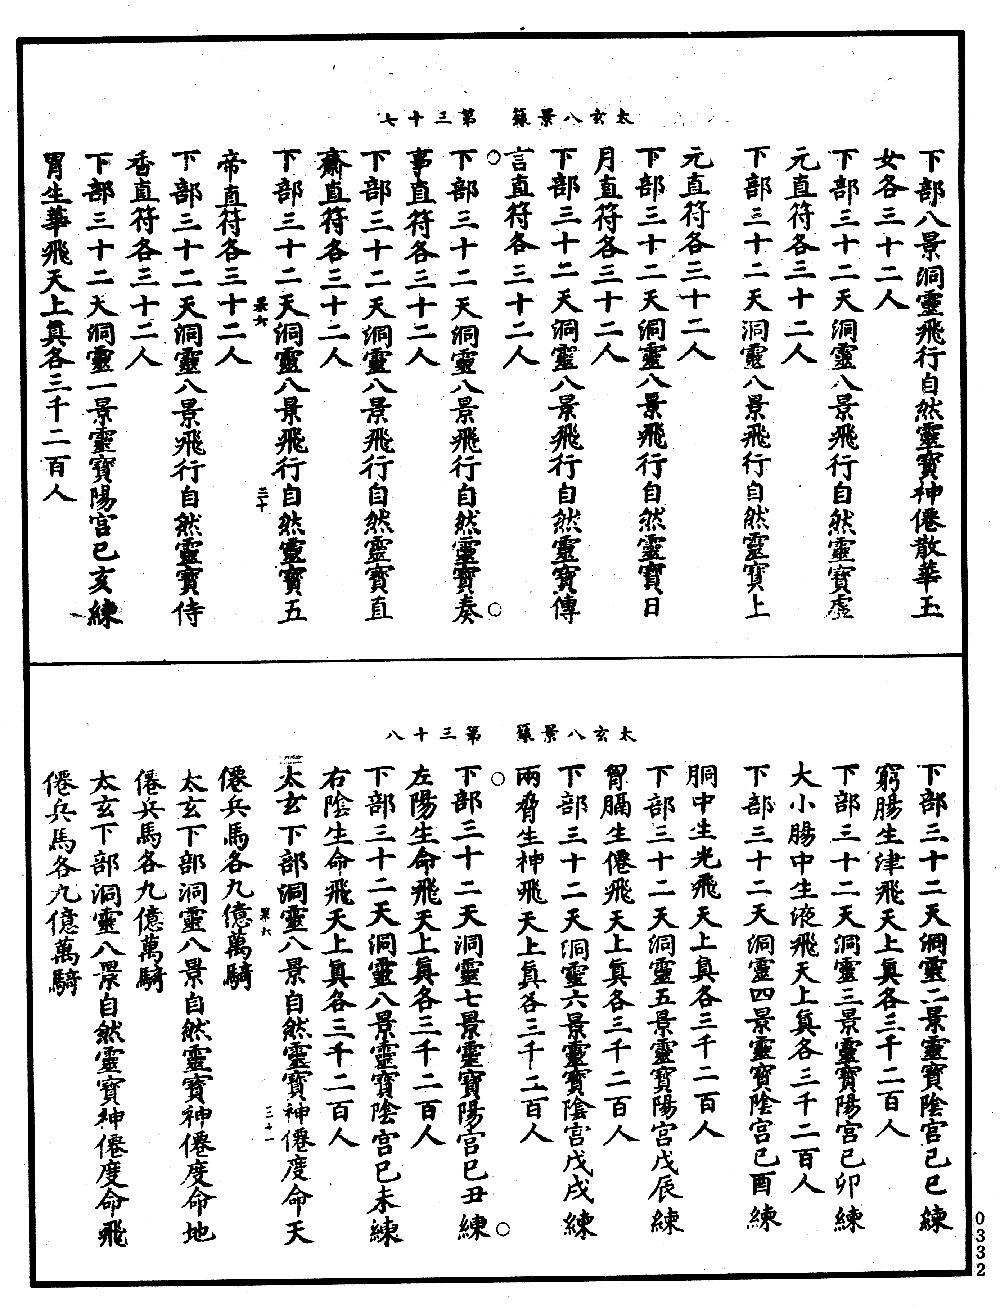 太玄八景籙　第三十七
下部八景洞靈飛行自然靈寶神僊散華玉
女各三十二人
下部三十二天洞靈八景飛行自然靈寶虛
元直符各三十二人
下部三十二天洞靈八景飛行自然靈寶上
元直符各三十二人
下部三十二天洞靈八景飛行自然靈寶日
月直符各三十二人
下部三十二天洞靈八景飛行自然靈寶傳
言直符各三十二人
下部三十二天洞靈八景飛行自然靈寶奏
事直符各三十二人
下部三十二天洞靈八景飛行自然靈寶直
齋直符各三十二人
下部三十二天洞靈八景飛行自然靈寶五
菓六　三十
帝直符各三十二人
下部三十二天洞靈八景飛行自然靈寶侍
香直符各三十二人
下部三十二天洞靈一景靈寶陽宮己亥練
胃生華飛天上真各三千二百人
太玄八景籙　第三十八
下部三十二天洞靈二景靈寶陰宮己巳練
窮腸生津飛天上真各三千二百人
下部三十二天洞靈三景靈寶陽宮己卯練
大小腸中生液飛天上真各三千二百人
下部三十二天洞靈四景靈寶陰宮己酉練
胴中生光飛天上真各三千二百人
下部三十二天洞靈五景靈寶陽宮戊辰練
胷膈生僊飛天上真各三千二百人
下部三十二天洞靈六景靈寶陰宮戊戌練
兩脅生神飛天上真各三千二百人
下部三十二天洞靈七景靈寶陽宮己丑練
左陽生命飛天上真各三千二百人
下部三十二天洞靈八景靈寶陰宮己未練
右陰生命飛天上真各三千二百人
太玄下部洞靈八景自然靈寶神僊度命天
菓六　三十一
僊兵馬各九億萬騎
太玄下部洞靈八景自然靈寶神僊度命地
僊兵馬各九億萬騎
太玄下部洞靈八景自然靈寶神僊度命飛
僊兵馬各九億萬騎
0332